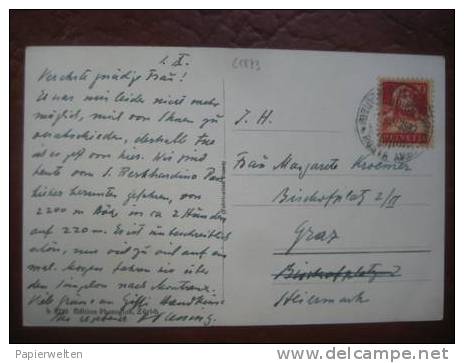 Verehrte gnädige Frau!
Es war mir leider nicht mehr
möglich, mich von Ihnen zu
verabschieden, deshalb tue
ich es jetzt von hier. Wir sind
heute vom S. Bernhardino Pass
hierher herunter gefahren, von
2200 m Höhe in ca 2 Stunden
auf 220 m. Es ist unbeschreiblich
schön, nur viel zu viel auf ein
mal. Morgen fahren wir über
den Simplon nach Montreux.
Viele Grüsse an Handküsse
Ihr ergebener
Edition Photoglob, Zürich
61873
HELVETIA
I. H.
Frau Margarete Kroemer
Bischofplatz 2/II
Graz
Bischofplatz 2
Steiermark
© Papierwelten
http://www.delcampe.net